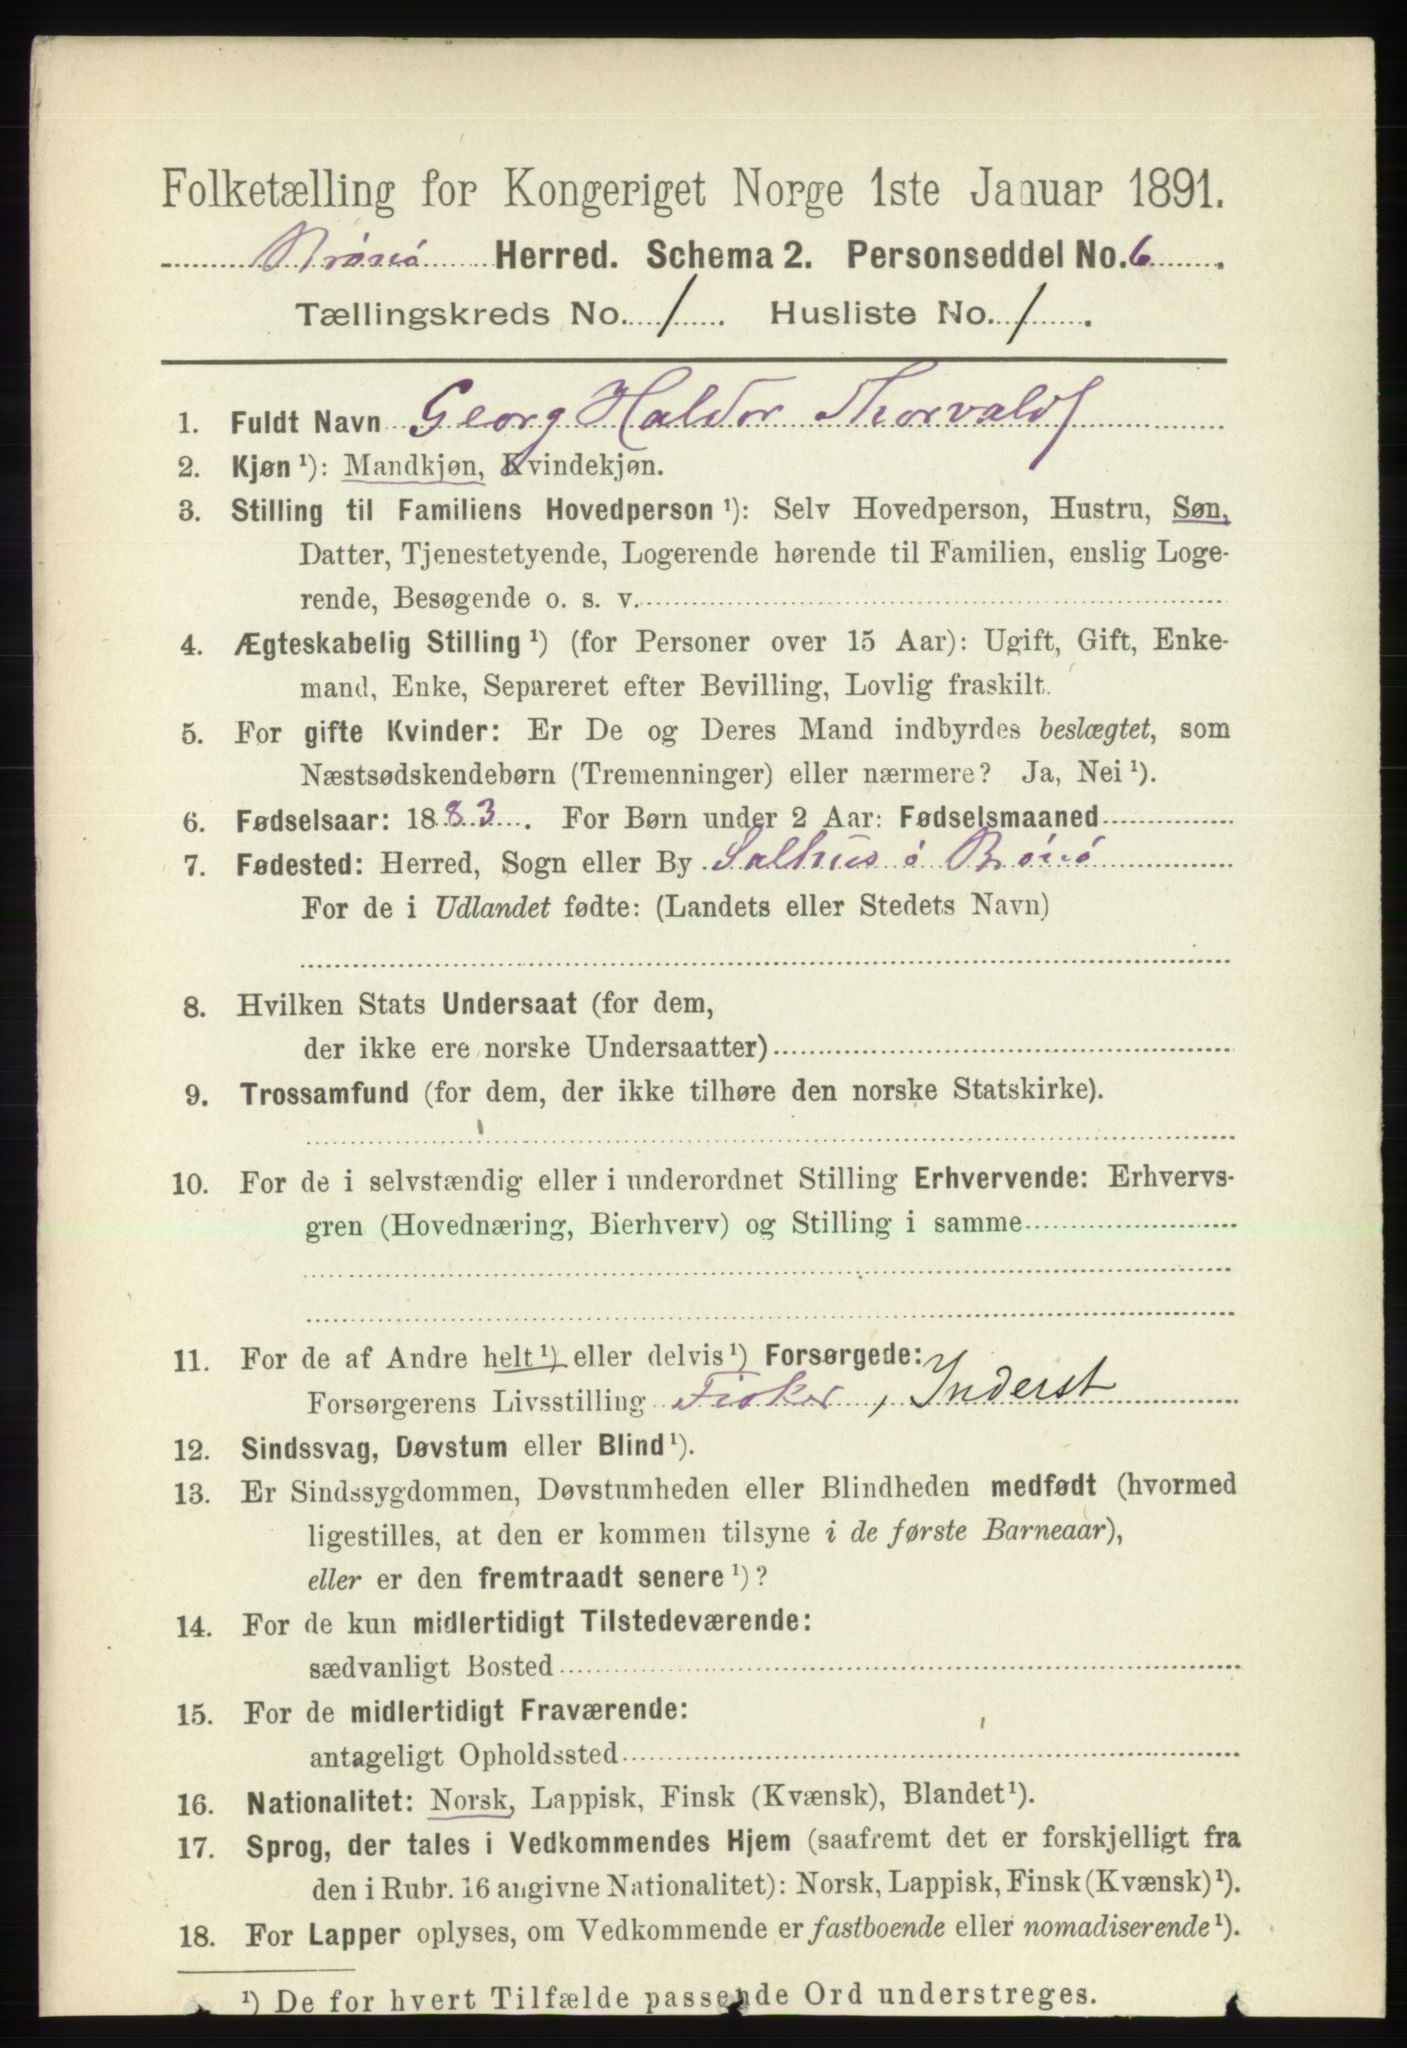 Folketælling for Kongeriget Norge 1ste Januar 1891.
Brönö Herred. Schema 2. Personseddel No. 6.
Tællingskreds No. 1. Husliste No. 1.
1. Fuldt Navn Georg Haldor Thorvalds
2. Kjøn ¹): Mandkjøn, Kvindekjøn.
3. Stilling til Familiens Hovedperson ¹): Selv Hovedperson, Hustru, Søn,
Datter, Tjenestetyende, Logerende hørende til Familien, enslig Loge-
rende, Besøgende o. s. v.
4. Ægteskabelig Stilling ¹) (for Personer over 15 Aar): Ugift, Gift, Enke-
mand, Enke, Separeret efter Bevilling, Lovlig fraskilt.
5. For gifte Kvinder: Er De og Deres Mand indbyrdes beslægtet, som
Næstsødskendebørn (Tremenninger) eller nærmere? Ja, Nei ¹).
6. Fødselsaar: 1883. For Børn under 2 Aar: Fødselsmaaned
7. Fødested: Herred, Sogn eller By Salhus ö Brönö
For de i Udlandet fødte: (Landets eller Stedets Navn)
8. Hvilken Stats Undersaat (for dem,
der ikke ere norske Undersaatter)
9. Trossamfund (for dem, der ikke tilhøre den norske Statskirke).
10. For de i selvstændig eller i underordnet Stilling Erhvervende: Erhvervs-
gren (Hovednæring, Bierhverv) og Stilling i samme
11. For de af Andre helt ¹) eller delvis ¹) Forsørgede:
Forsørgerens Livsstilling Fisker, Inderst
12. Sindssvag, Døvstum eller Blind ¹).
13. Er Sindssygdommen, Døvstumheden eller Blindheden medfødt (hvormed
ligestilles, at den er kommen tilsyne i de første Barneaar),
eller er den fremtraadt senere ¹)?
14. For de kun midlertidigt Tilstedeværende:
sædvanligt Bosted
15. For de midlertidigt Fraværende:
antageligt Opholdssted
16. Nationalitet: Norsk, Lappisk, Finsk (Kvænsk), Blandet ¹).
17. Sprog, der tales i Vedkommendes Hjem (saafremt det er forskjelligt fra
den i Rubr. 16 angivne Nationalitet): Norsk, Lappisk, Finsk (Kvænsk) ¹).
18. For Lapper oplyses, om Vedkommende er fastboende eller nomadiserende ¹).
¹) De for hvert Tilfælde passende Ord understreges.